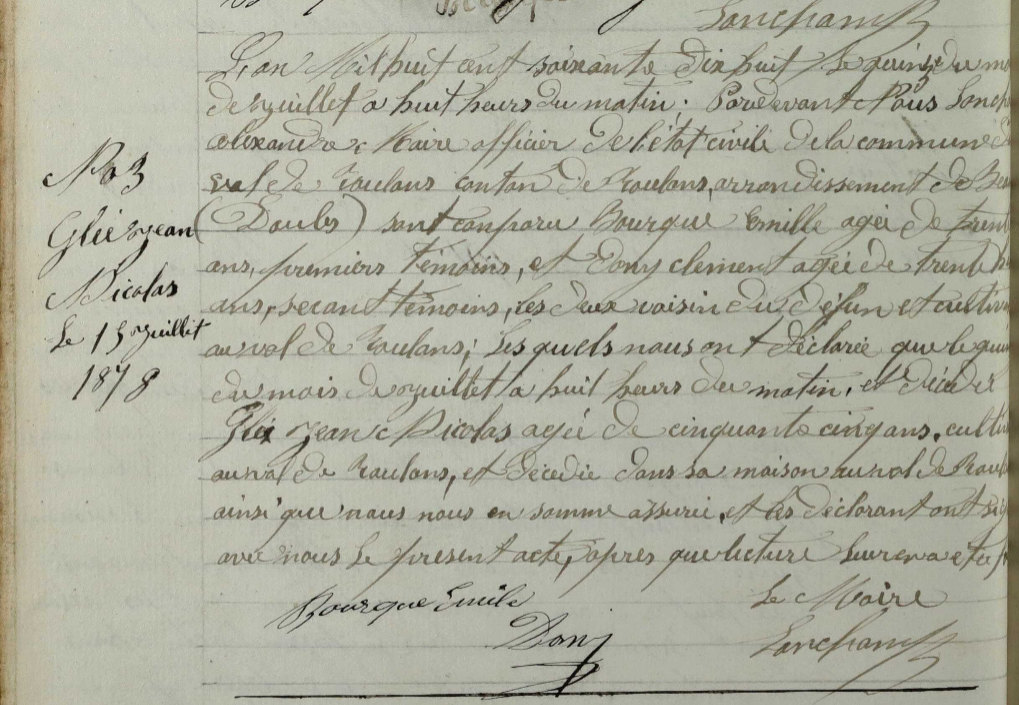 Lonchamp
L'an Mil huit cent soixante Dix huit le quinze du mo
de juillet a huit heurs du matin. Pardevant Nous Lonch
alexandre Maire officier De l'état civile de la commune d
val de Roulans canton de Roulans, arrondissement de Be
(Doubs) sont conparu Bourque Emille agée de trent
ans, premiers témoins, et Dony clement agée de trent h
ans, secant témoins, les deux voisin du défun et cultiv
au val de Roulans; Lesquels nous ont déclarée que le quin
du mois de juillet a huit heurs du matin, et décédé
Gliex jean Nicolas agée de cinquante cinq ans, culti
au val de Roulans, et décédée dans sa maison au val de Roul
ainsi que nous nous en somme assurée, et les déclarant ont sig
avec nous le present acte, apres que lecture leur en a eté f
Bourque Emile
Dony
Le Maire
Lonchamp
No 3
Gliex jean
Nicolas
Le 15 juillet
1878